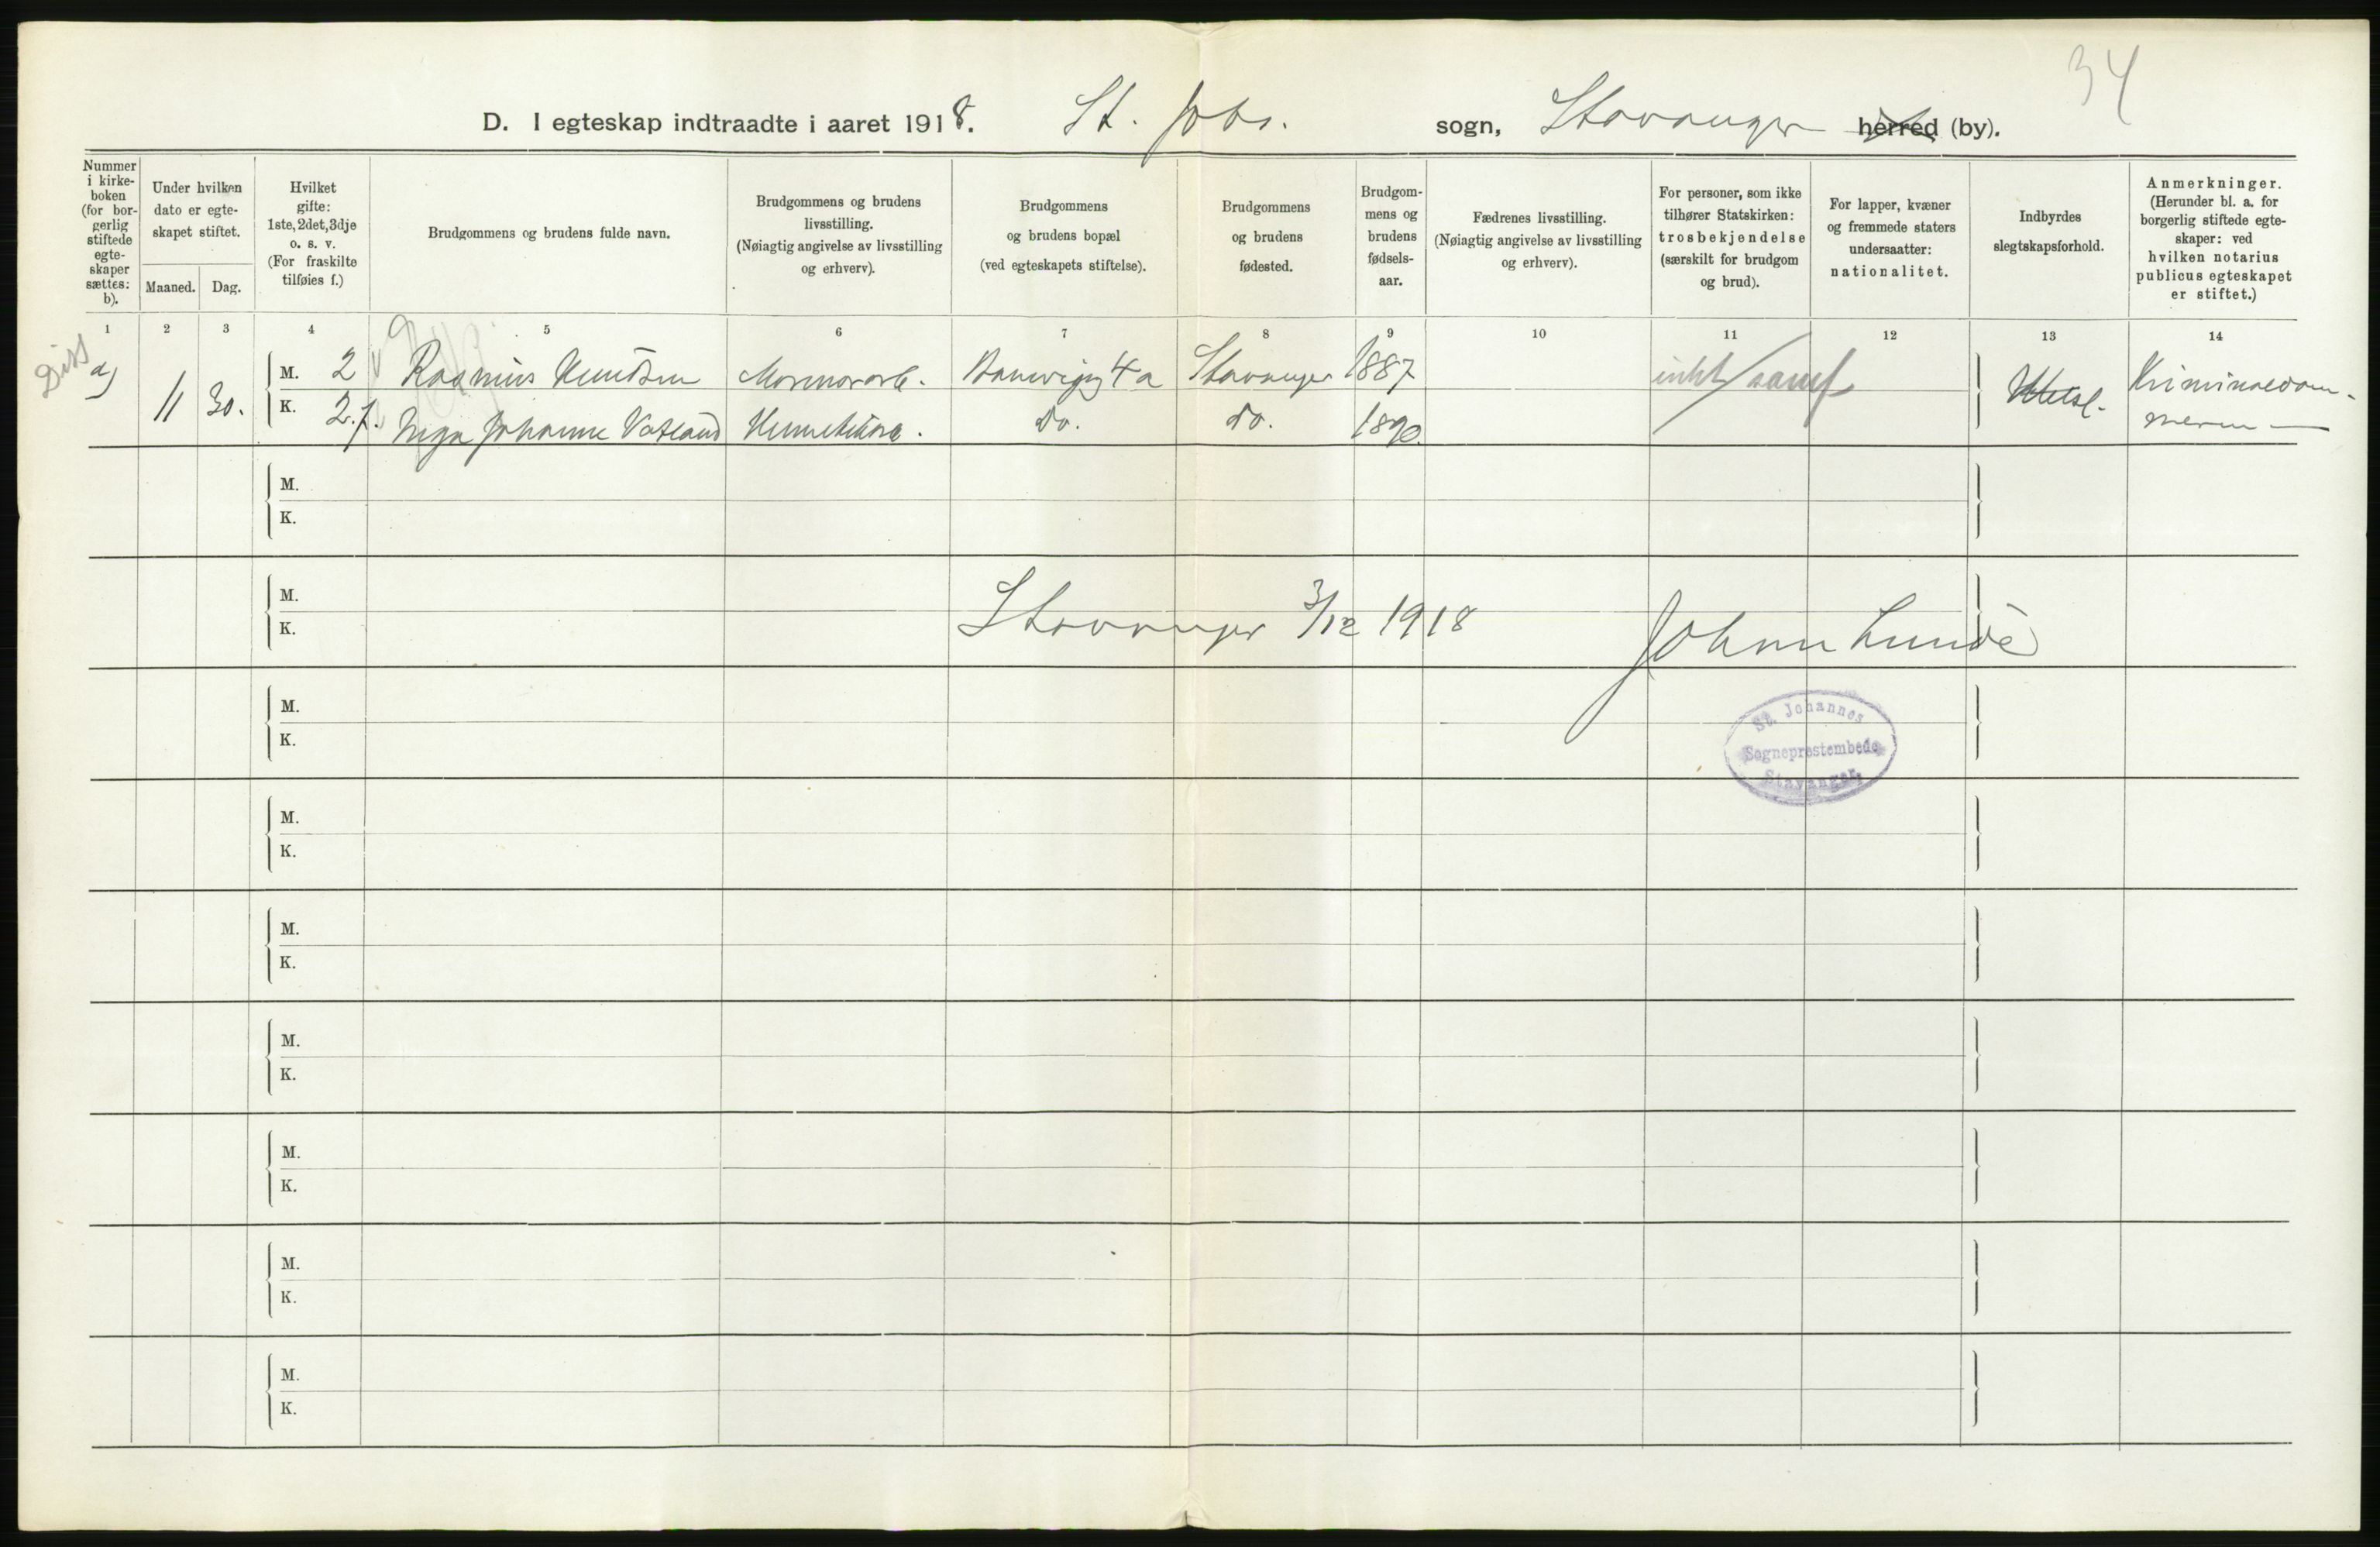 34
D. I egteskap indtraadte i aaret 1918. St. Johs. sogn, Stavanger herred (by).
Nummer i kirkeboken (for borgerlig stiftede egteskaper sættes: b).
Under hvilken dato er egteskapet stiftet.
Maaned. Dag.
Hvilket gifte: 1ste, 2det, 3dje o. s. v. (For fraskilte tilføies f.)
Brudgommens og brudens fulde navn.
Brudgommens og brudens livsstilling. (Nøiagtig angivelse av livsstilling og erhverv).
Brudgommens og brudens bopæl (ved egteskapets stiftelse).
Brudgommens og brudens fødested.
Brudgommens og brudens fødselsaar.
Fædrenes livsstilling. (Nøiagtig angivelse av livsstilling og erhverv).
For personer, som ikke tilhører Statskirken: trosbekjendelse (særskilt for brudgom og brud).
For lapper, kvæner og fremmede staters undersaatter: nationalitet.
Indbyrdes slegtskapsforhold.
Anmerkninger. (Herunder bl. a. for borgerlig stiftede egteskaper: ved hvilken notarius publicus egteskapet er stiftet.)
1 2 3 4 5 6 7 8 9 10 11 12 13 14
Diss
a) 11 30. M. 2 Rasmus Knudsen Marmorarb. 4a Stavanger 1887
K. 2.f. Inga Johanne Vatland do. do. 1890.
M.
K.
M.
K.
Stavanger 3/12 1918 Johan Lunde
M.
K.
St. Johannes
Sogneprestembede
Stavanger.
M.
K.
M.
K.
M.
K.
M.
K.
M.
K.
M.
K.